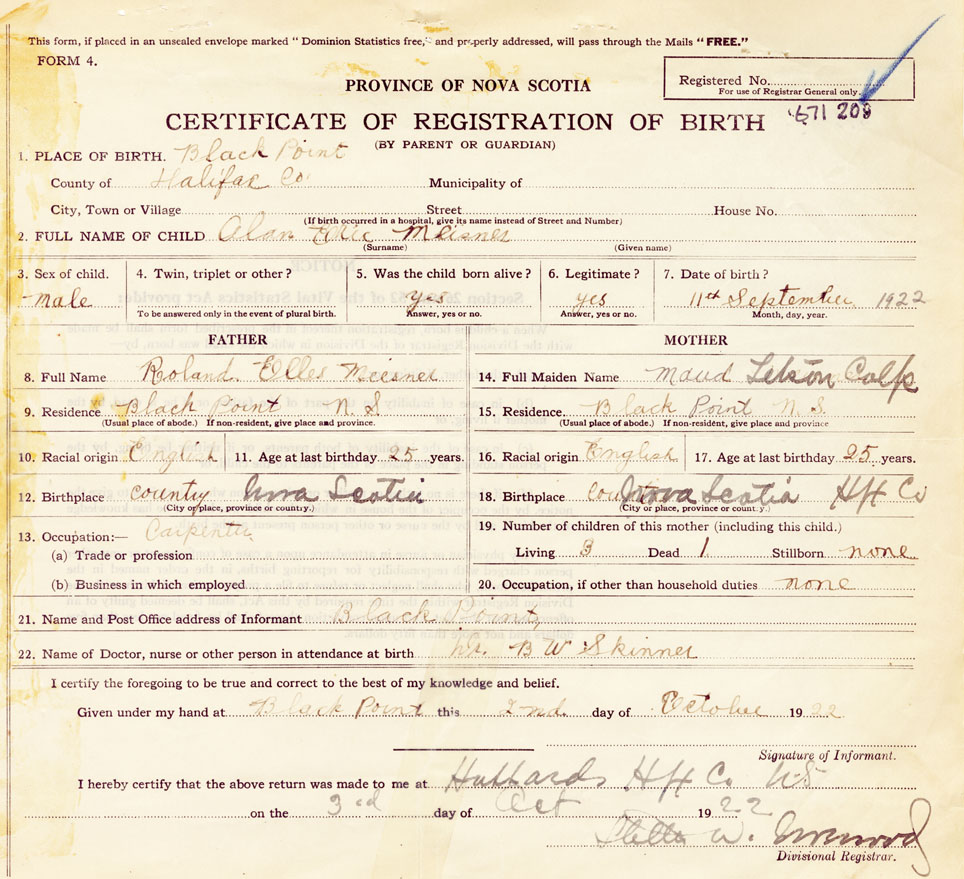 This form, if placed in an unsealed envelope marked "Dominion Statistics free," and properly addressed, will pass through the Mails "FREE."
FORM 4.
PROVINCE OF NOVA SCOTIA
Registered No.
For use of Registrar General only.
671 209
CERTIFICATE OF REGISTRATION OF BIRTH
(BY PARENT OR GUARDIAN)
1. PLACE OF BIRTH. Black Point
County of Halifax Co. Municipality of
City, Town or Village Street House No.
(If birth occurred in a hospital, give its name instead of Street and Number)
2. FULL NAME OF CHILD Alan Eric Meisner
(Surname) (Given name)
3. Sex of child. 4. Twin, triplet or other? 5. Was the child born alive? 6. Legitimate? 7. Date of birth?
male yes yes 11th September 1922
To be answered only in the event of plural birth. Answer, yes or no. Answer, yes or no. Month, day, year.
FATHER MOTHER
8. Full Name Roland Elles Meisner 14. Full Maiden Name Maud
9. Residence Black Point N.S. 15. Residence. Black Point N.S.
(Usual place of abode.) If non-resident, give place and province. (Usual place of abode.) If non-resident, give place and province
10. Racial origin English 11. Age at last birthday 25 years. 16. Racial origin English 17. Age at last birthday 25 years.
12. Birthplace county Nova Scotia 18. Birthplace county Nova Scotia Hfx Co
(City or place, province or country.) (City or place, province or country.)
13. Occupation:— Carpenter 19. Number of children of this mother (including this child.)
(a) Trade or profession Living 3 Dead 1 Stillborn none
(b) Business in which employed 20. Occupation, if other than household duties none
21. Name and Post Office address of Informant Black Point
22. Name of Doctor, nurse or other person in attendance at birth Dr. B W Skinner
I certify the foregoing to be true and correct to the best of my knowledge and belief.
Given under my hand at Black Point this 2nd. day of October 1922
Signature of Informant.
I hereby certify that the above return was made to me at Hubbards Hfx Co N.S
on the 3rd day of Oct 1922
W.
Divisional Registrar.